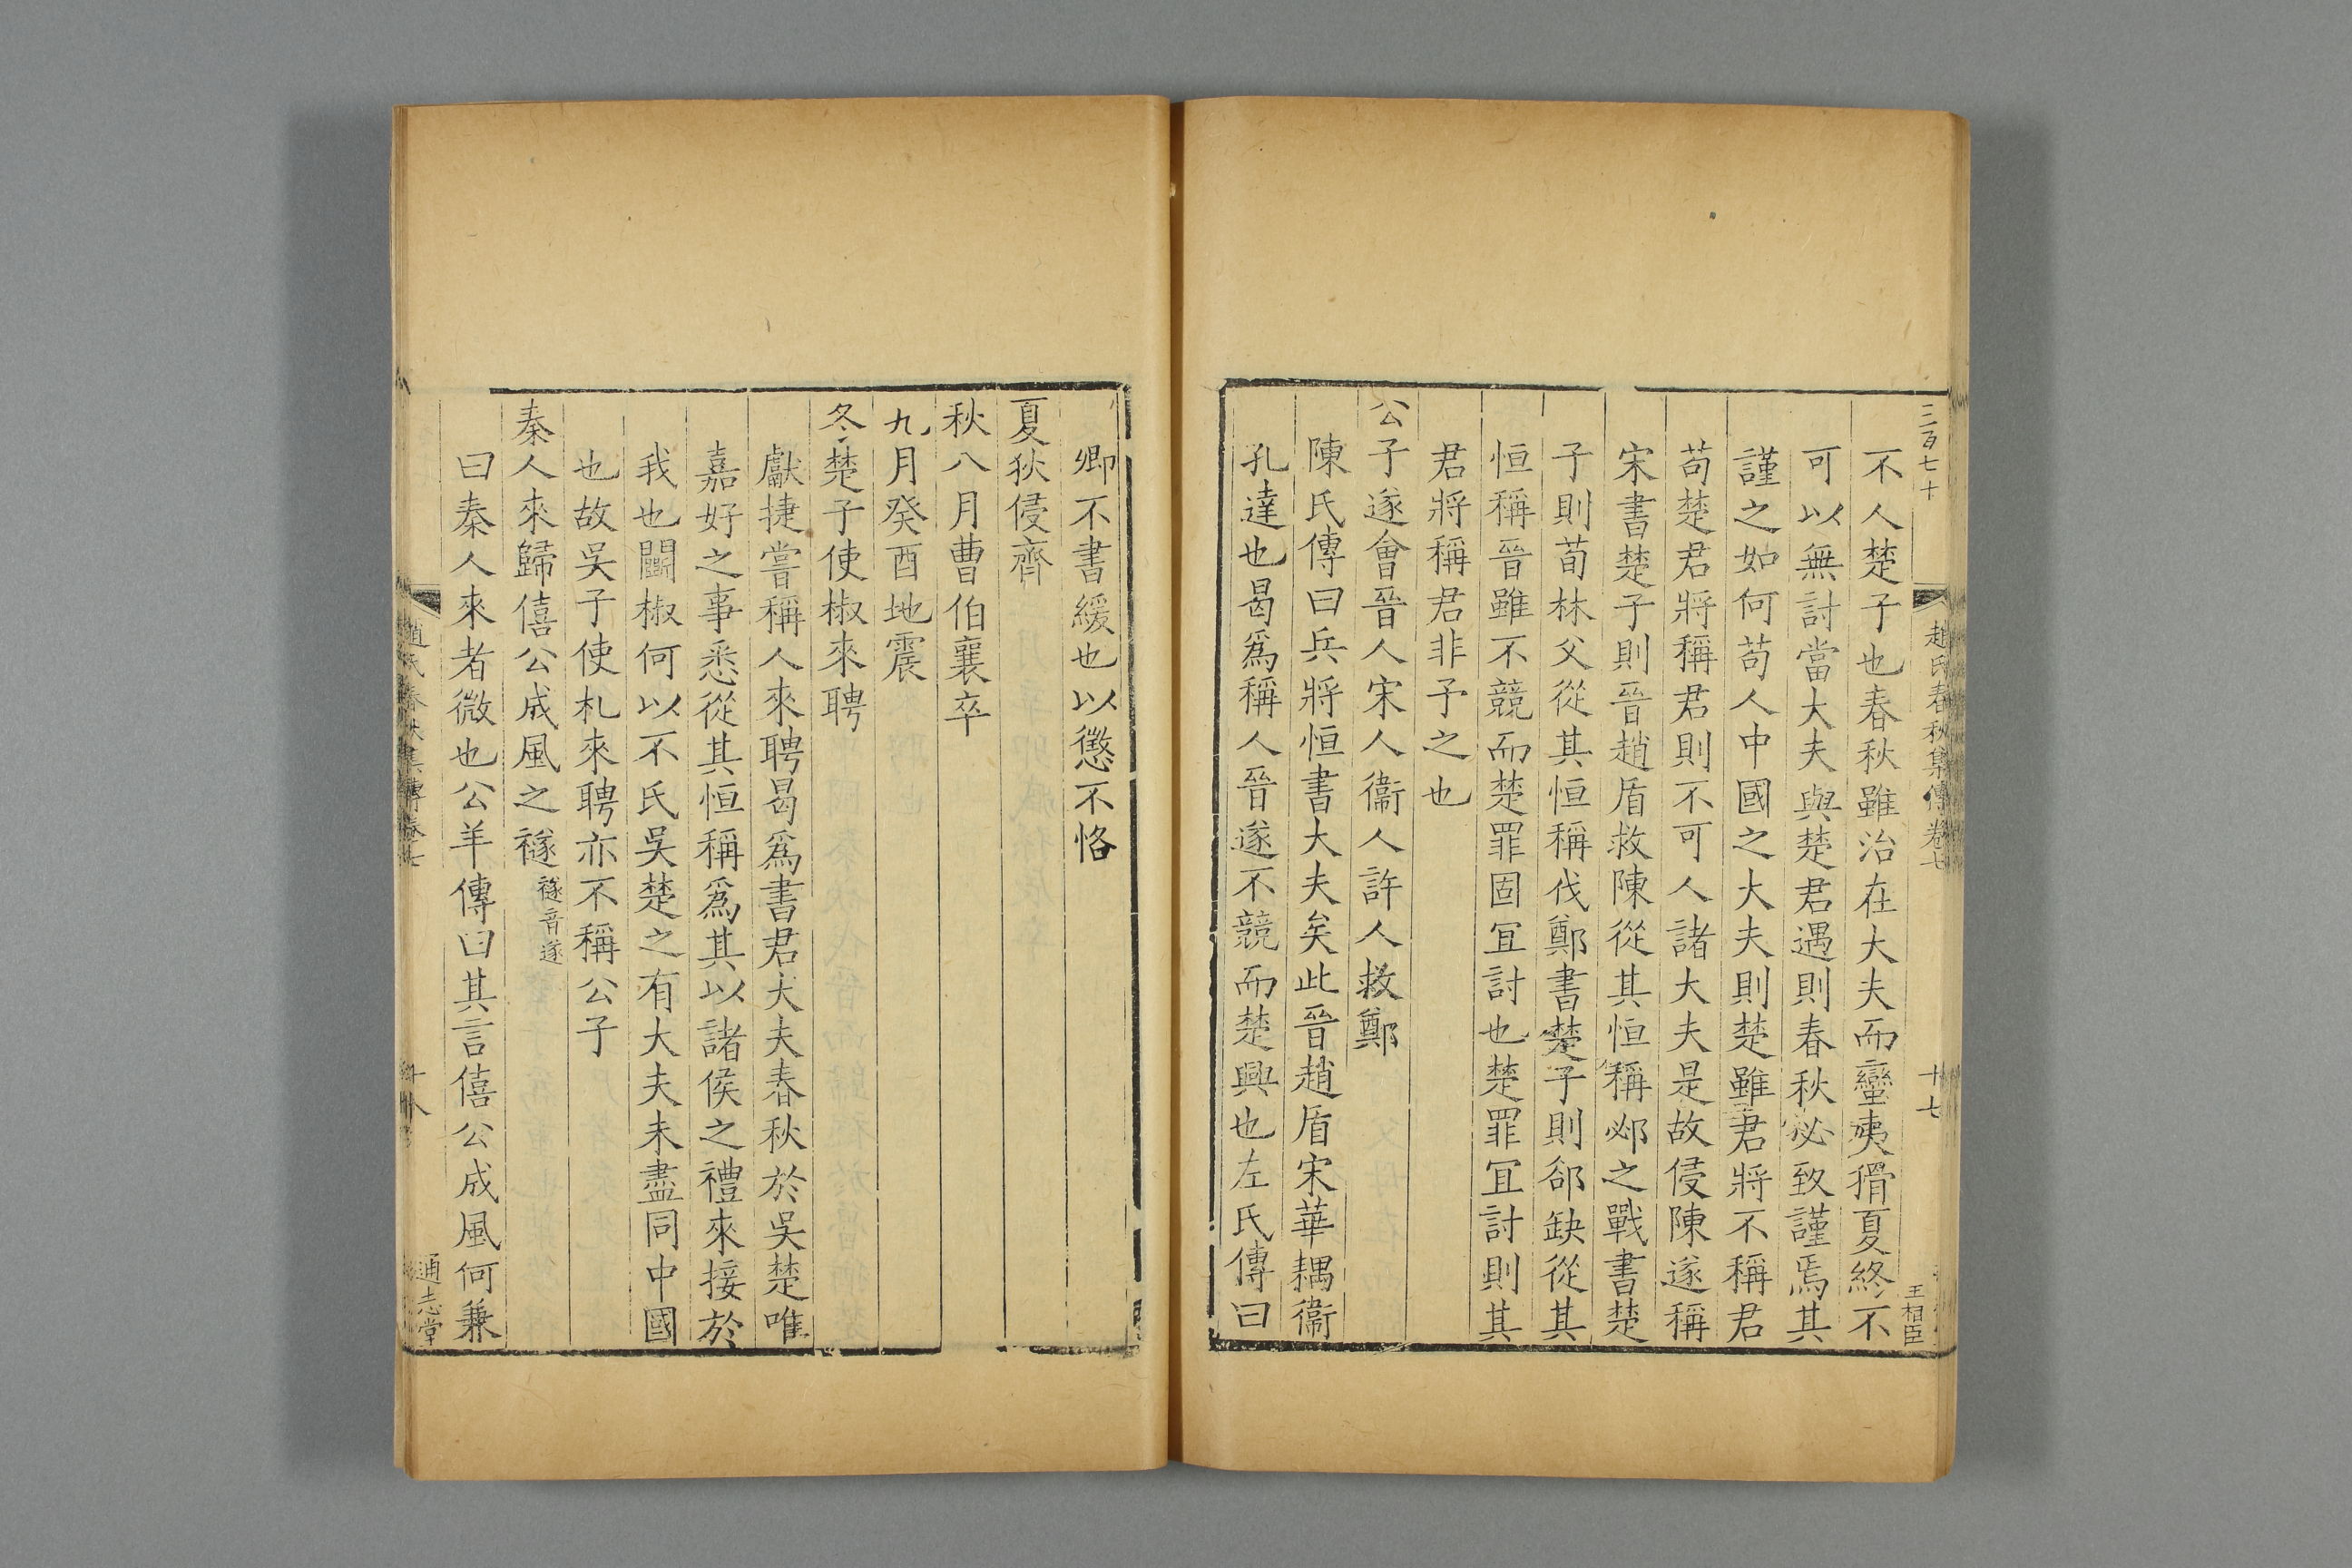 二百七十
趙氏春秋集傳卷七
十七
王相臣
不人楚子也春秋雖治在大夫而蠻夷猾夏終不
可以無討當大夫與楚君遇則春秋必致謹焉其
謹之如何苟人中國之大夫則楚雖君將不稱君
苟楚君將稱君則不可人諸大夫是故侵陳遂稱
宋書楚子則晉趙盾救陳從其恒稱邲之戰書楚
子則荀林父從其恒稱伐鄭書楚子則郤缺從其
恒稱晉雖不競而楚罪固冝討也楚罪冝討則其
君將稱君非予之也
公子遂會晉人宋人衞人許人救鄭
陳氏傳曰兵將恒書大夫矣此晉趙盾宋華耦衞
孔達也曷爲稱人晉遂不競而楚興也左氏傳曰
卿不書緩也以懲不恪
夏狄侵齊
秋八月曹伯襄卒
九月癸酉地震
冬楚子使椒來聘
獻捷嘗稱人來聘曷爲書君大夫春秋於吳楚唯
嘉好之事悉從其恒稱爲其以諸侯之禮來接於
我也鬬椒何以不氏吳楚之有大夫未盡同中國
也故吳子使札來聘亦不稱公子
秦人來歸僖公成風之襚襚音遂
曰秦人來者微也公羊傳曰其言僖公成風何兼
趙氏春秋集傳卷七
十八
通志堂